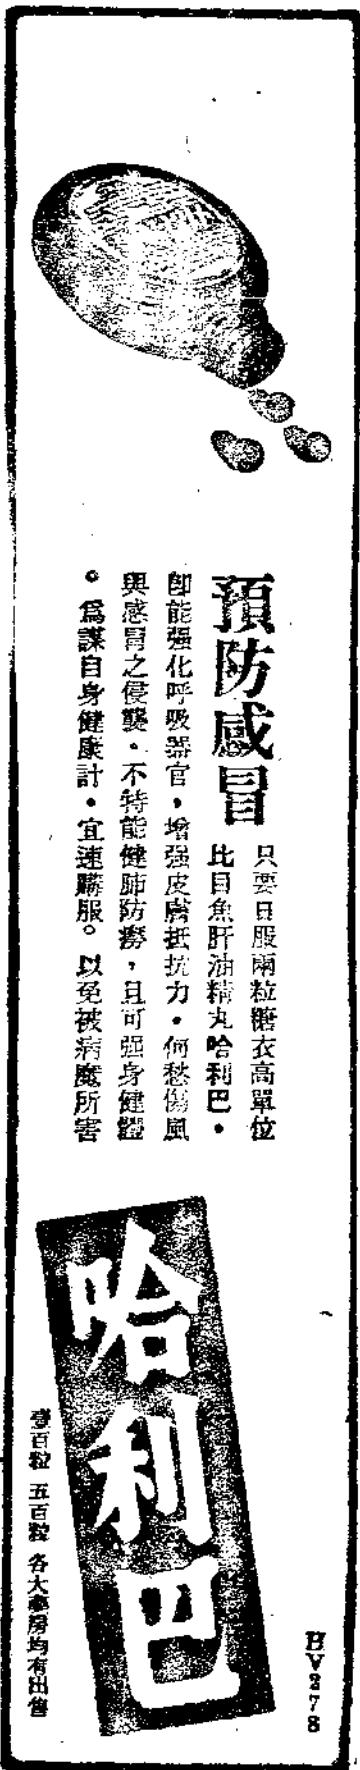 預防感冒
只要日服兩粒糖衣高單位
比目魚肝油精丸哈利巴・
卽能强化呼吸器官，增强皮膚抵抗力・何愁傷風
與感冒之侵襲・不特能健肺防癆，且可强身健體
。爲謀自身健康計・宜速購服。以免被病魔所害
哈利巴
壹百粒 五百粒 各大藥房均有出售
HV278